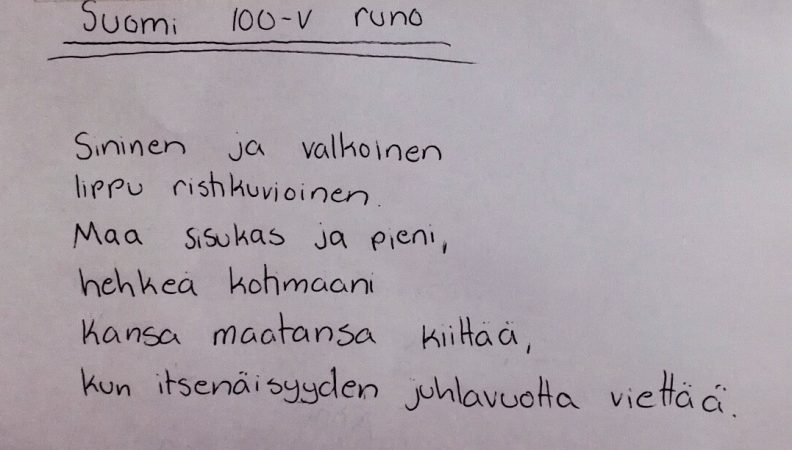 Suomi 100-v runo
Sininen ja valkoinen
lippu ristikuvioinen.
Maa sisukas ja pieni,
hehkeä kotimaani
Kansa maatansa kiittää,
kun itsenäisyyden juhlavuotta viettää.